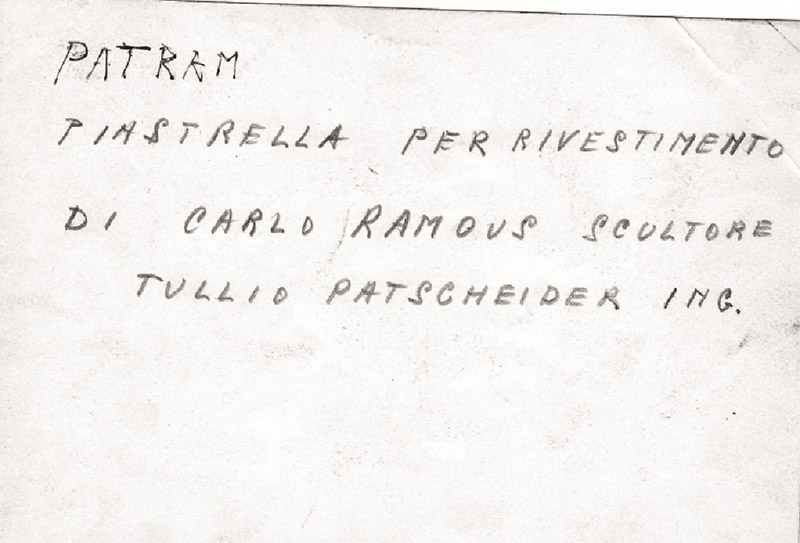 PATRAM
PIASTRELLA PER RIVESTIMENTO
DI CARLO RAMOUS SCULTORE
TULLIO PATSCHEIDER ING.